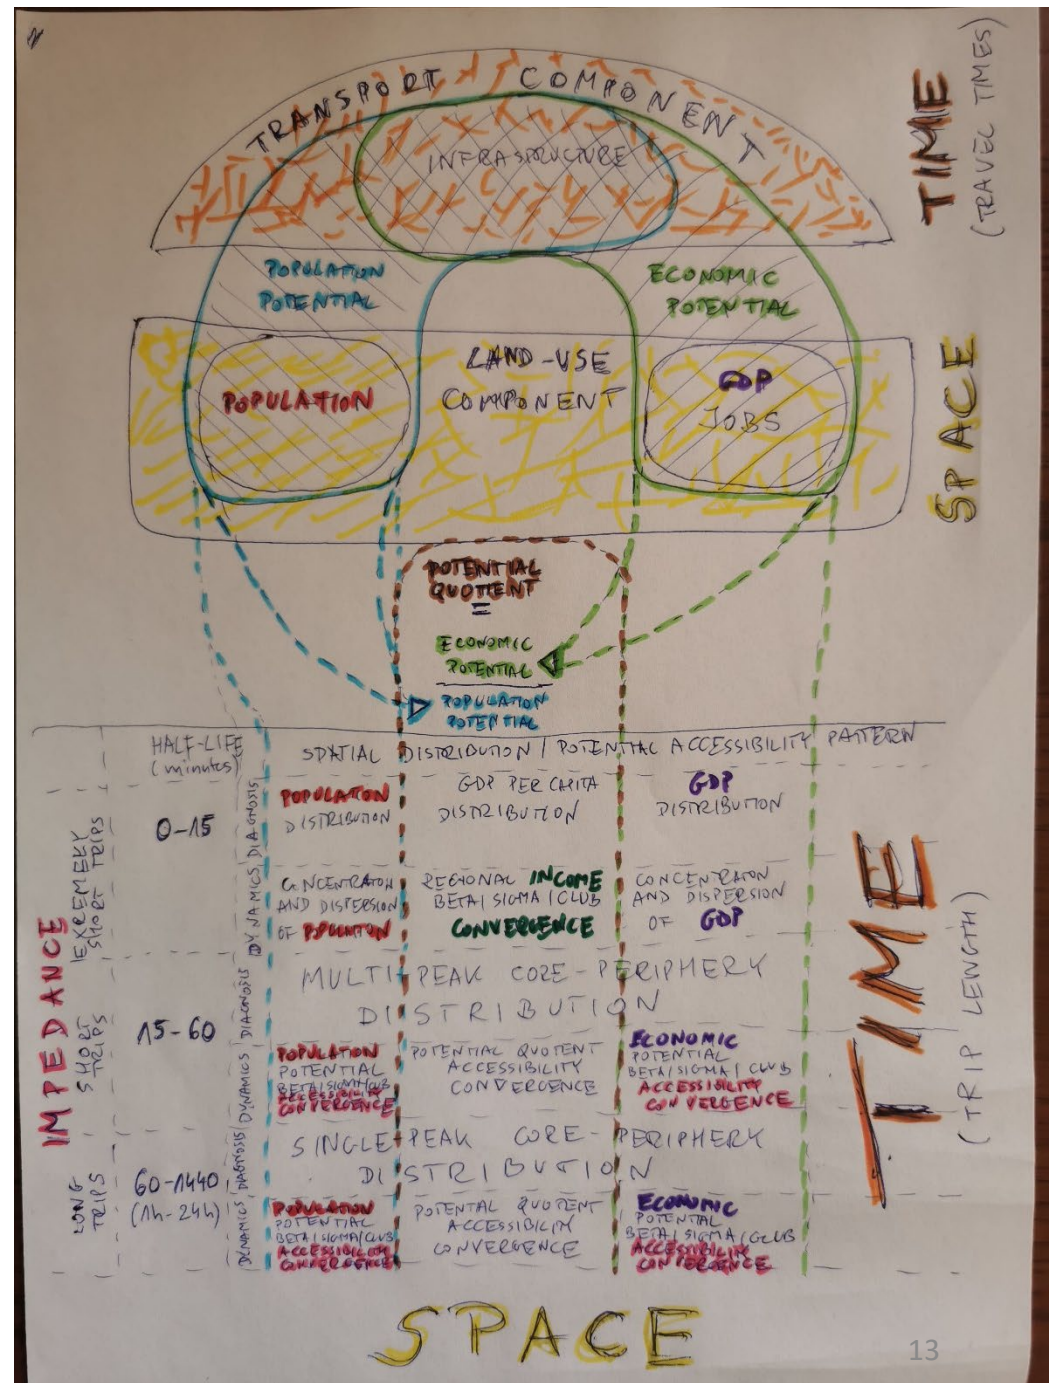 TRANSPORT COMPONENT
INFRASTRUCTURE
TIME
(TRAVEL TIMES)
POPULATION
POTENTIAL
ECONOMIC
POTENTIAL
LAND-USE
COMPONENT
POPULATION
GDP
JOBS
SPACE
POTENTIAL
QUOTIENT
=
ECONOMIC
POTENTIAL
POPULATION
POTENTIAL
HALF-LIFE
(minutes)
SPATIAL DISTRIBUTION / POTENTIAL ACCESSIBILITY PATTERN
IMPEDANCE
EXREMELY
SHORT TRIPS
0-15
DIAGNOSIS
POPULATION
DISTRIBUTION
GDP PER CAPITA
DISTRIBUTION
GDP
DISTRIBUTION
DYNAMICS
CONCENTRATON
AND DISPERSION
OF POPULATON
REGIONAL INCOME
BETA/SIGMA/CLUB
CONVERGENCE
CONCENTRATON
AND DISPERSION
OF GDP
SHORT
TRIPS
15-60
DIAGNOSIS
MULTI-PEAK CORE-PERIPHERY
DISTRIBUTION
DYNAMICS
POPULATION
POTENTIAL
BETA/SIGMA/CLUB
ACCESSIBILITY
CONVERGENCE
POTENTIAL QUOTENT
ACCESSIBILITY
CONVERGENCE
ECONOMIC
POTENTIAL
BETA/SIGMA/CLUB
ACCESSIBILITY
CONVERGENCE
LONG
TRIPS
60-1440
(1h-24h)
DIAGNOSIS
SINGLE-PEAK CORE-PERIPHERY
DISTRIBUTION
DYNAMICS
POPULATION
POTENTIAL
BETA/SIGMA/CLUB
ACCESSIBILITY
CONVERGENCE
POTENTAL QUOTENT
ACCESSIBILITY
CONVERGENCE
ECONOMIC
POTENTIAL
BETA/SIGMA/CLUB
ACCESSIBILITY
CONVERGENCE
TIME
(TRIP LENGTH)
SPACE
13